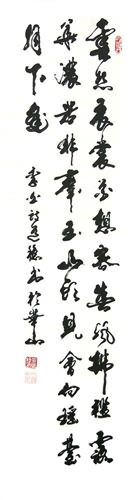 雲想衣裳花想容春風拂檻露
華濃若非羣玉山頭見會向瑤臺
月下逢
李白詩 書於華山